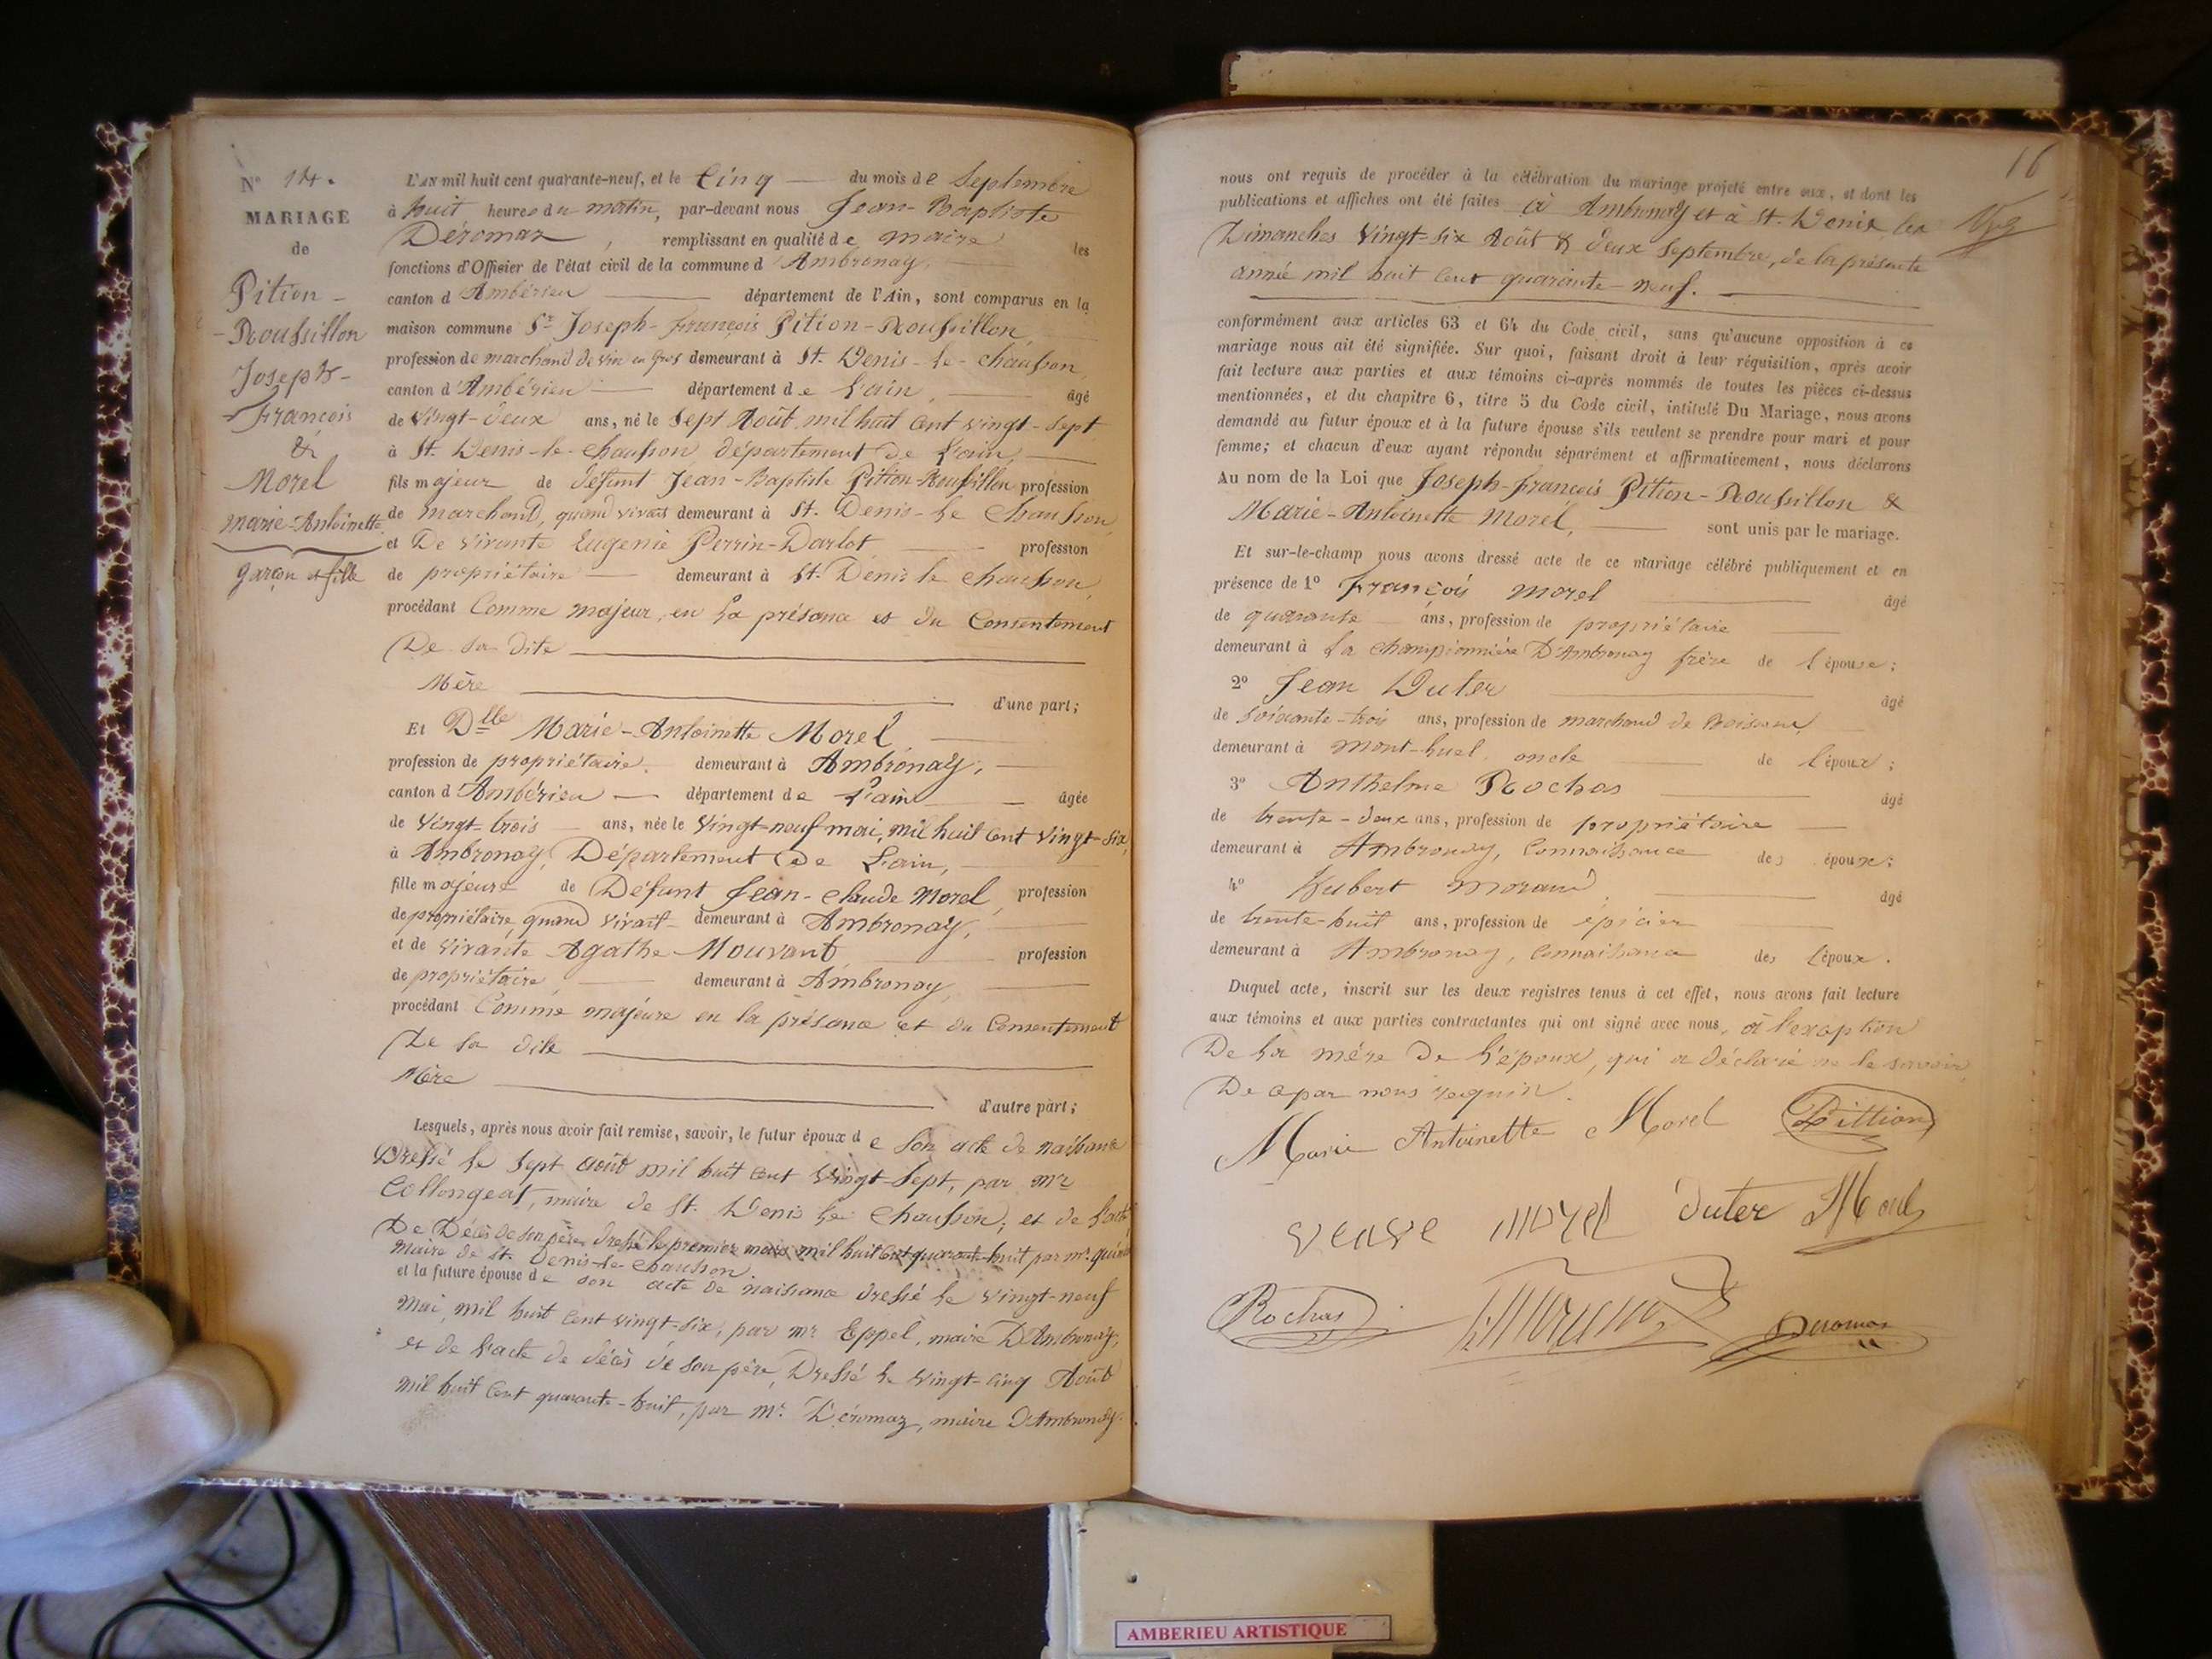 N° 14.
MARIAGE
de
Pition-
-Roussillon
Joseph-
-François
&
Morel
Marie-Antoinette
garçon et fille
L'AN mil huit cent quarante-neuf, et le Cinq du mois de Septembre
à huit heures du matin, par-devant nous Jean-Baptiste
Déromaz, remplissant en qualité de maire les
fonctions d'Officier de l'état civil de la commune d'Ambronay,
canton d'Ambérieu département de l'Ain, sont comparus en la
maison commune Sr. Joseph-François Pition-Roussillon,
profession de marchand de vin en gros demeurant à St. Denis-le-Chausson,
canton d'Ambérieu département de L'ain, âgé
de Vingt-deux ans, né le Sept Août, mil huit Cent vingt-Sept
à St. Denis-le-Chausson département de L'ain,
fils majeur de défunt Jean-Baptiste Pition-Roussillon profession
de marchand, quand vivait demeurant à St. Denis-le Chausson,
et De vivante Eugénie Perrin-Darlot, profession
de propriétaire demeurant à St. Denis le Chausson,
procédant Comme majeur, en La présence et du Consentement
De Sa dite
Mère d'une part;
Et Dlle Marie-Antoinette Morel,
profession de propriétaire. demeurant à Ambronay,
canton d'Ambérieu département de L'ain âgée
de Vingt-trois ans, née le Vingt-neuf mai, mil huit Cent Vingt-Six,
à Ambronay, Département De L'ain,
fille majeure de Défunt Jean-Claude Morel, profession
de propriétaire, quand vivait demeurant à Ambronay,
et de vivante Agathe Mouvant, profession
de propriétaire, demeurant à Ambronay,
procédant Comme majeure en la présence et du Consentement
De Sa dite
Mère d'autre part;
Lesquels, après nous avoir fait remise, savoir, le futur époux de Son acte de naissance
Dressé le Sept août mil huit Cent Vingt-Sept, par Mr
Collongeat, maire de St. Denis le Chausson; et de L'acte
De Décès de son père, dressé le premier mars mil huit Cent quarante-huit par mr.
Maire de St. Denis-le-Chausson
et la future épouse de son acte de naissance dressé le Vingt-neuf
Mai, mil huit Cent vingt-Six, par Mr Eppel, maire D'Ambronay,
et de L'acte de décès de Son père, Dressé le Vingt-Cinq Août
mil huit Cent quarante-huit, par Mr. Déromaz, maire D'Ambronay.
16
nous ont requis de procéder à la célébration du mariage projeté entre eux, et dont les
publications et affiches ont été faites à Ambronay et à St. Denis les
Dimanches Vingt-Six Août & deux Septembre, de la présente
année mil huit Cent quarante-neuf.
conformément aux articles 63 et 64 du Code civil, sans qu'aucune opposition à ce
mariage nous ait été signifiée. Sur quoi, faisant droit à leur réquisition, après avoir
fait lecture aux parties et aux témoins ci-après nommés de toutes les pièces ci-dessus
mentionnées, et du chapitre 6, titre 5 du Code civil, intitulé Du Mariage, nous avons
demandé au futur époux et à la future épouse s'ils veulent se prendre pour mari et pour
femme; et chacun d'eux ayant répondu séparément et affirmativement, nous déclarons
Au nom de la Loi que Joseph-François Pition-Roussillon &
Marie-Antoinette Morel, sont unis par le mariage.
Et sur-le-champ nous avons dressé acte de ce mariage célébré publiquement et en
présence de 1° François Morel âgé
de quarante ans, profession de propriétaire
demeurant à La Championnière D'Ambronay frère de l'épouse;
2° Jean Duter âgé
de Soixante-trois ans, profession de marchand de
demeurant à Mont-Luel, oncle de l'époux;
3° Anthelme Rochas âgé
de trente-deux ans, profession de propriétaire
demeurant à Ambronay, Connaissance des époux;
4° Hubert Morand, âgé
de trente-huit ans, profession de épicier
demeurant à Ambronay, Connaissance des époux.
Duquel acte, inscrit sur les deux registres tenus à cet effet, nous avons fait lecture
aux témoins et aux parties contractantes qui ont signé avec nous, à l'exception
De La mère De L'époux, qui a déclaré ne le savoir
De ce par nous requis.
Marie Antoinette Morel Pittion
veuve morel Duter Morel
Rochas Morand Deromas
AMBERIEU ARTISTIQUE